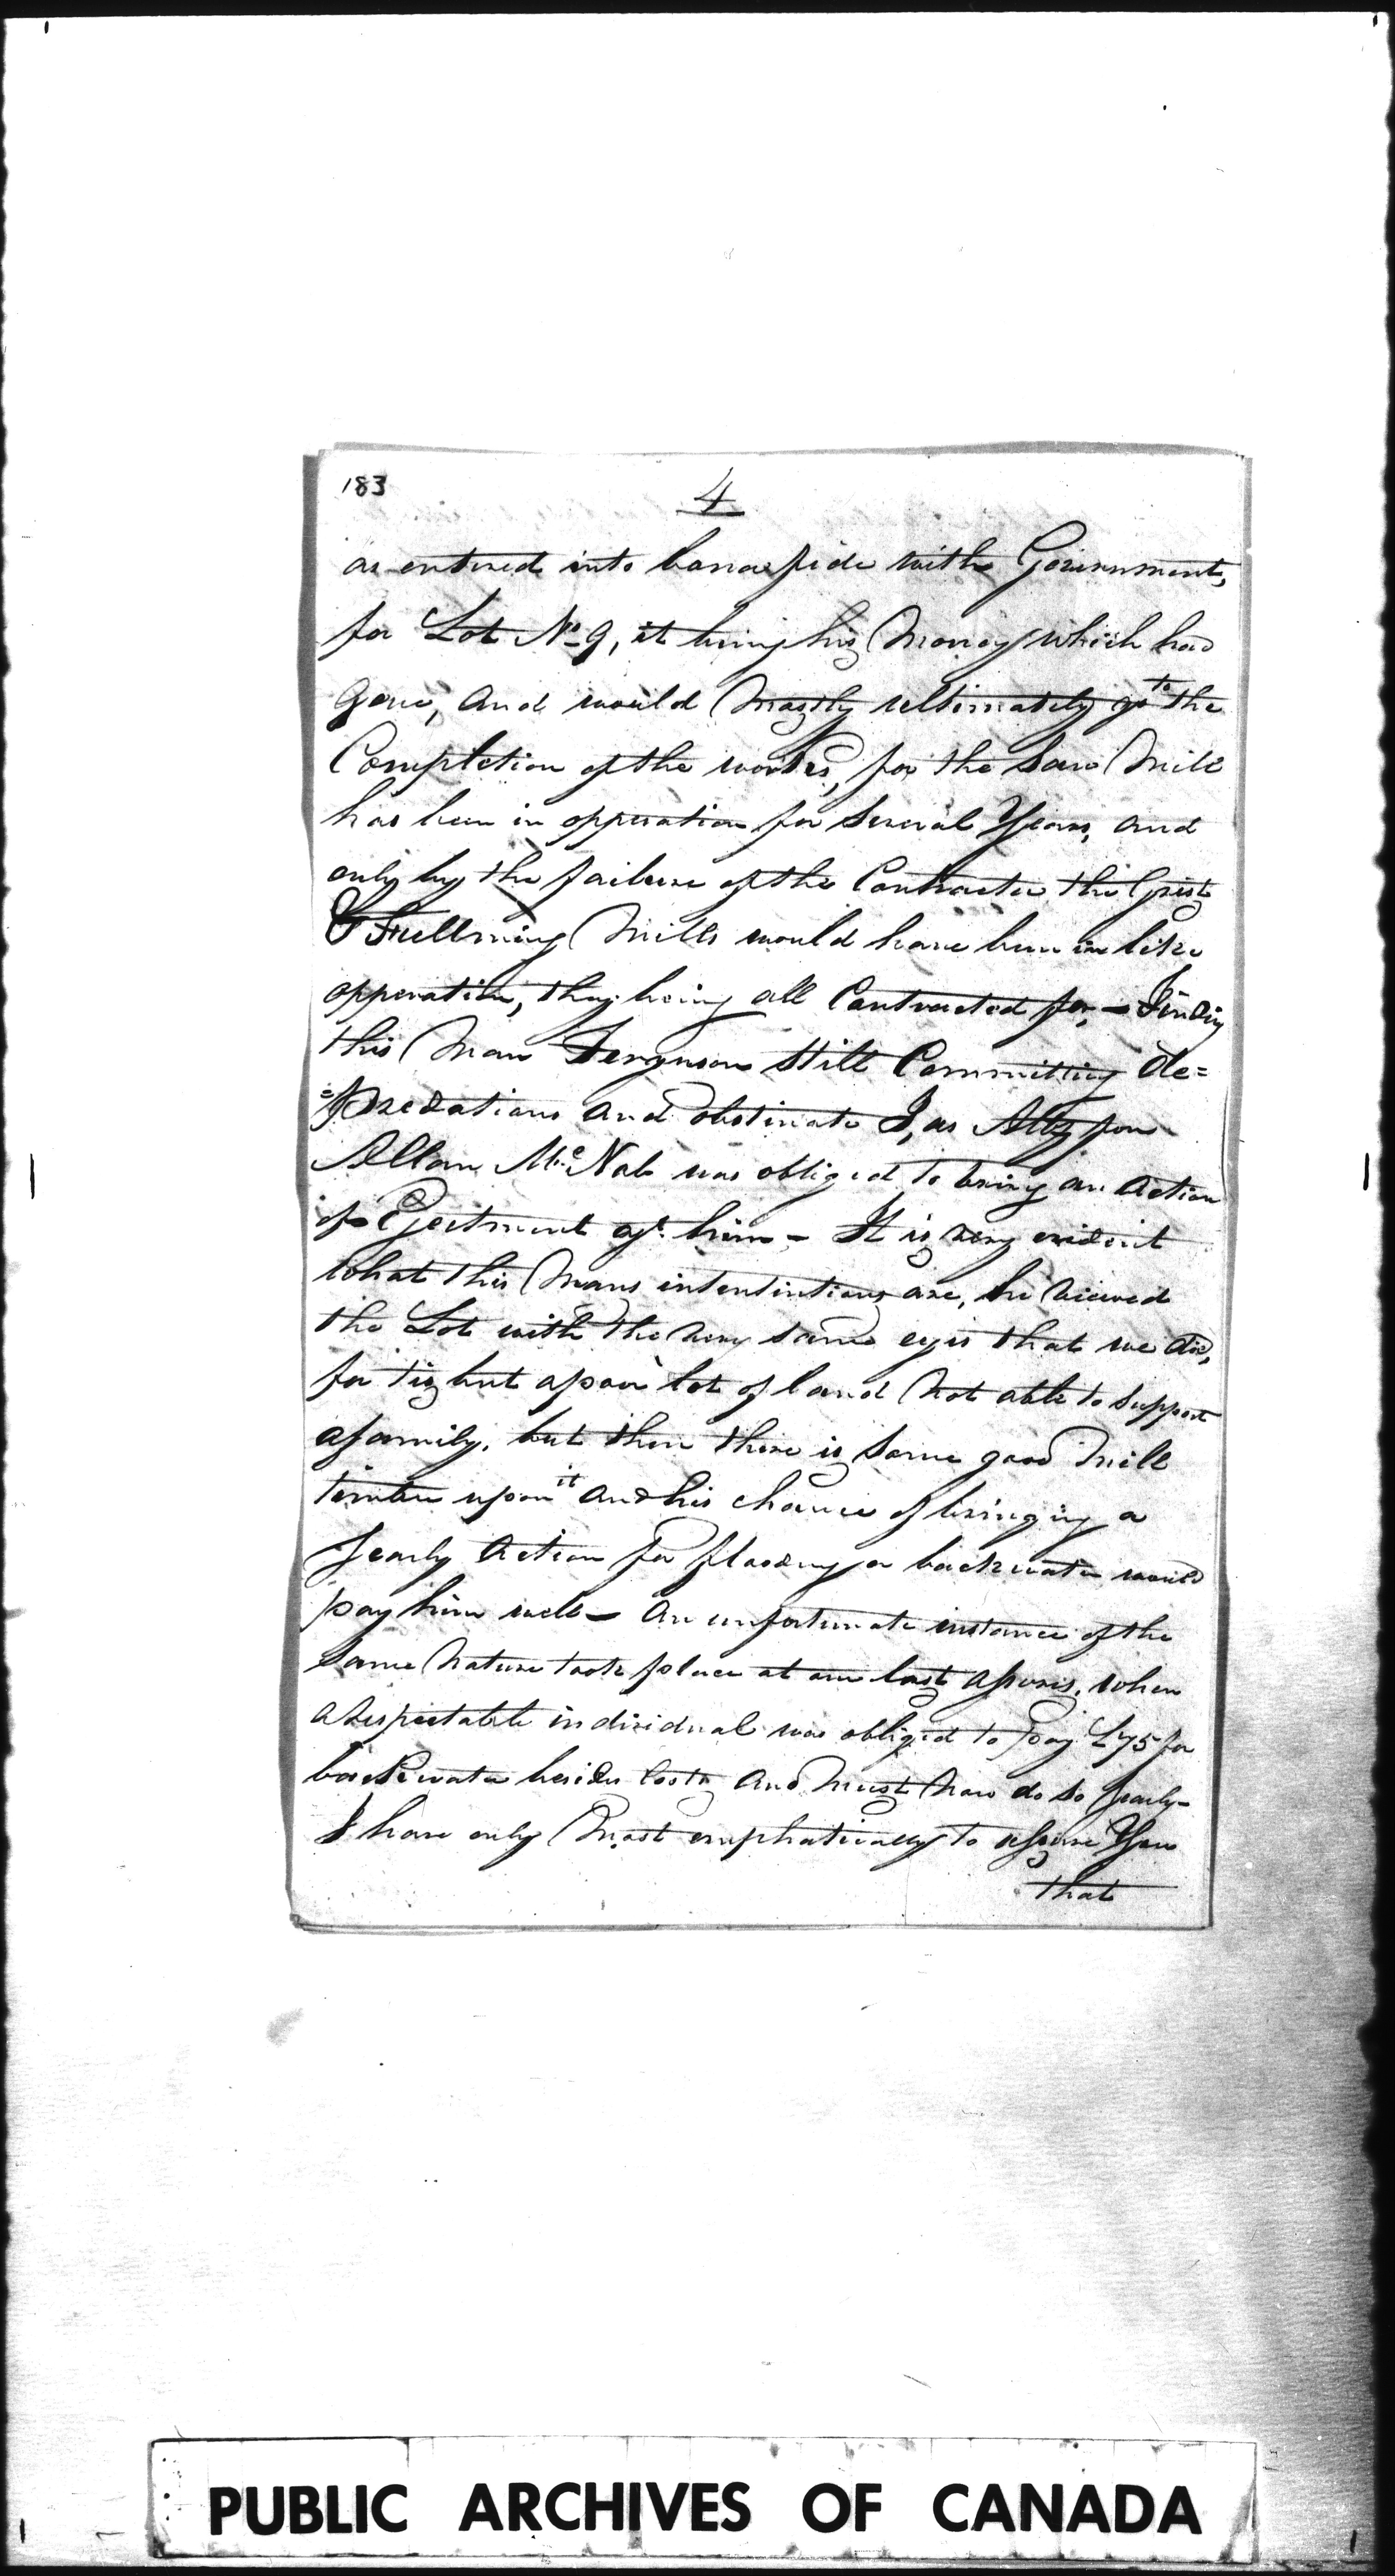 183
4
as entered into bona fide with Government,
for Lot No 9, it being his Money which had
gone, and would mostly ultimately go to the
Completion of the works, for the Saw Mill
has been in opperation for several Years, and
only by the failure of the Contractor the Grist
& Fullming Mills would have been in like
opperation, they being all Contracted for, - Finding
this Man Ferguson still Committing de=
=predations and obstinate I, as Atty for
Allan McNab was obliged to bring an Action
of Ejectment agt. him - It is very evident
what this Mans intentintions are, he viewed
the Lot with the very same eyes that we did,
for tis but a poor lot of land not able to support
a family, but then there is some good Mill
timber upon it and his chance of bringing a
yearly Action for flooding or backwater would
pay him well - An unfortunate instance of the
same Nature took place at our last Assizes, when
a respectable individual was obliged to pay £75 for
backwater besides Costs and must now do so yearly -
I have only most emphatically to assure You
that
PUBLIC ARCHIVES OF CANADA